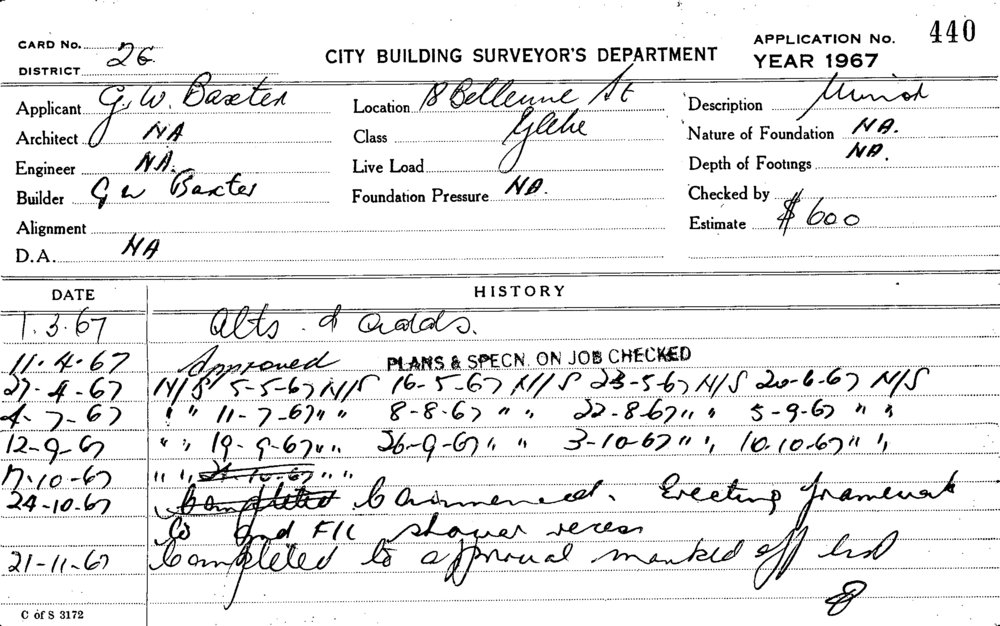 CARD No. 26
DISTRICT
CITY BUILDING SURVEYOR'S DEPARTMENT
APPLICATION No. 440
YEAR 1967
Applicant G. W. Baxter
Location 18 Bellevue St
Description Minor
Architect NA
Class Glebe
Nature of Foundation NA.
Engineer NA.
Live Load
Depth of Footings NA.
Builder G W Baxter
Foundation Pressure NA.
Checked by
Alignment
Estimate $600
D.A. NA
DATE HISTORY
1.3.67 Alts. & Adds.
11.4.67 Approved PLANS & SPECN. ON JOB CHECKED
27-4-67 N/S 5-5-67 N/S 16-5-67 N/S 23-5-67 N/S 20-6-67 N/S
4-7-67 " " 11-7-67 " " 8-8-67 " " 22-8-67 " " 5-9-67 " "
12-9-67 " " 19-9-67 " " 26-9-67 " " 3-10-67 " " 10.10-67 " "
17-10-67 " " 24-10-67 " "
24-10-67 Completed Commenced. Erecting framework
to 2nd F/C shower recess
21-11-67 Completed to approval marked off list
C of S 3172